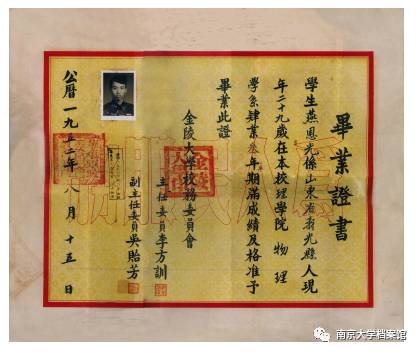 畢業證書
學生燕恩光係山東省壽光縣人現
年二十九歲在本校理學院物理
學系肄業叁年期滿成績及格准予
畢業此證
金陵大學校務委員會
主任委員李方訓
副主任委員吳貽芳
公曆一九五年八月十五日
南京大学档案馆